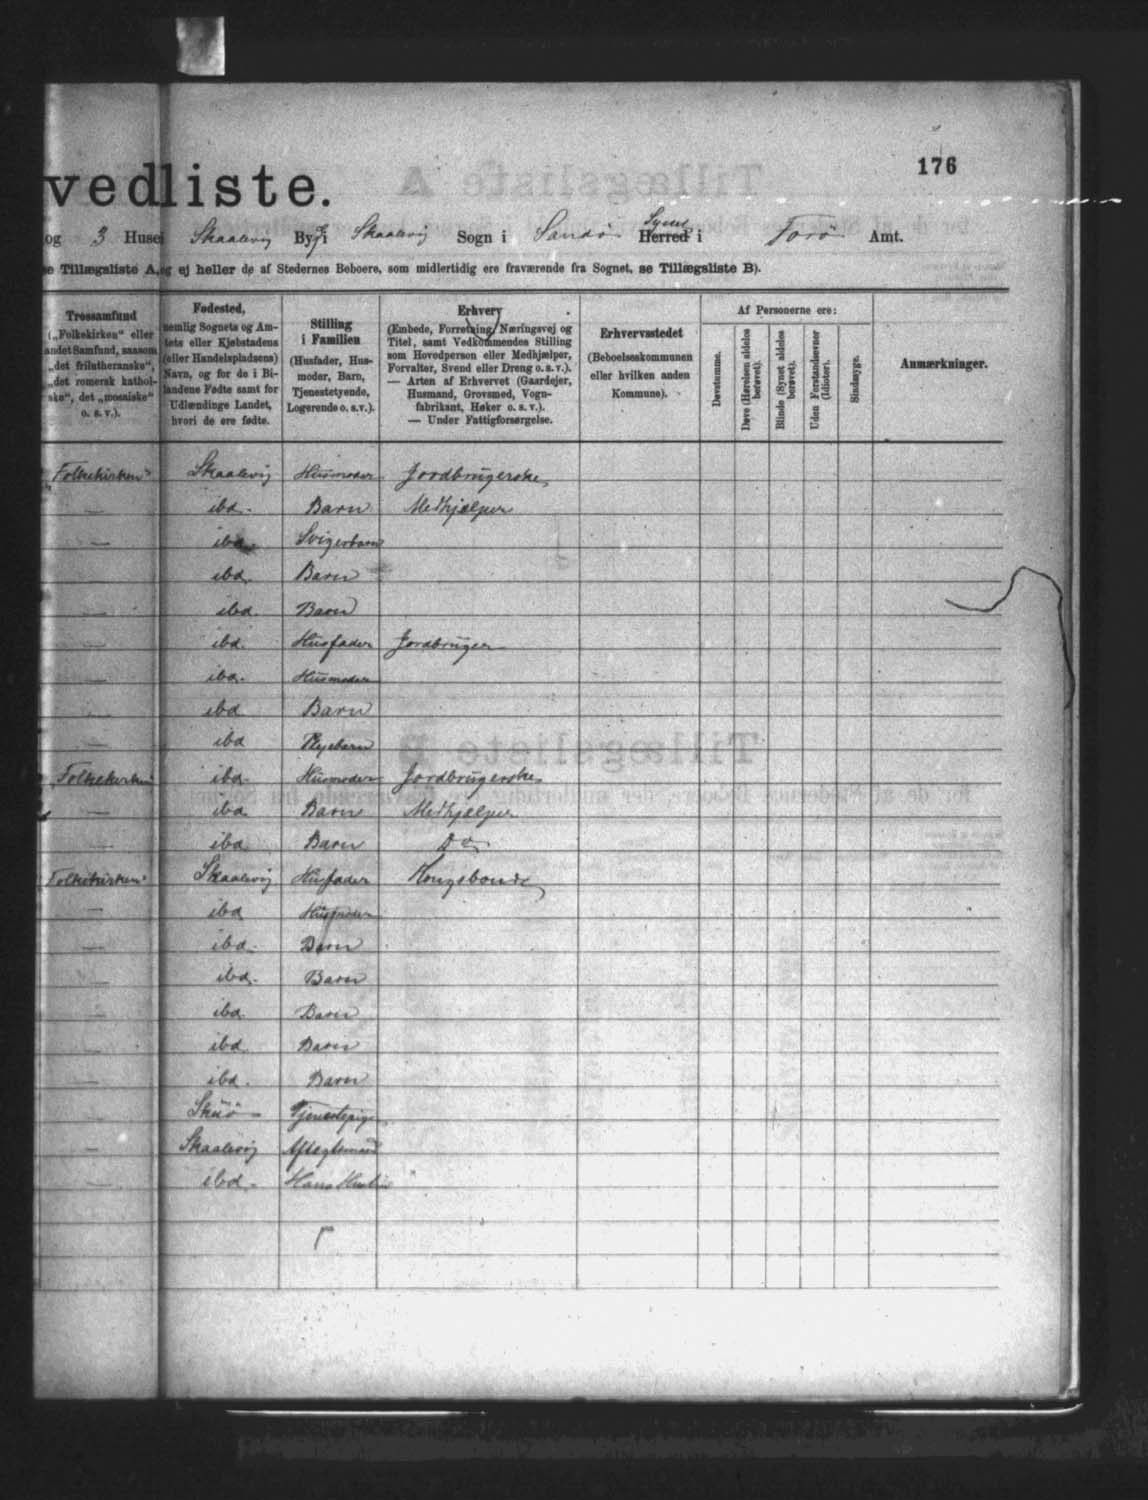 176
vedliste.
og 3 Huse i Skaalevig By i Skaalevig Sogn i Sandø Syssel Herred i Færø Amt.
se Tillægsliste A, og ej heller de af Stedernes Beboere, som midlertidig ere fraværende fra Sognet, se Tillægsliste B).
Trossamfund („Folkekirken“ eller andet Samfund, saasom „det frilutheranske“, „det romersk katholske“, det „mosaiske“ o. s. v.).
Fødested, nemlig Sognets og Amtets eller Kjøbstadens (eller Handelspladsens) Navn, og for de i Bilandene Fødte samt for Udlændinge Landet, hvori de ere fødte.
Stilling i Familien (Husfader, Husmoder, Barn, Tjenestetyende, Logerende o. s. v.).
Erhverv (Embede, Forretning, Næringsvej og Titel, samt Vedkommendes Stilling som Hovedperson eller Medhjælper, Forvalter, Svend eller Dreng o. s. v.). — Arten af Erhvervet (Gaardejer, Husmand, Grovsmed, Vognfabrikant, Høker o. s. v.). — Under Fattigforsørgelse.
Erhvervsstedet (Beboelseskommunen eller hvilken anden Kommune).
Af Personerne ere:
Døvstumme.
Døve (Hørelsen aldeles berøvet).
Blinde (Synet aldeles berøvet).
Uden Forstandsevner (Idioter).
Sindssyge.
Anmærkninger.
„Folkekirken“ Skaalevig Husmoder Jordbrugerske
— ibd. Barn Medhjælper
— ibd. Svigerbarn
— ibd. Barn
— ibd. Barn
— ibd. Husfader Jordbruger
— ibd. Husmoder
— ibd. Barn
— ibd Plejebarn
„Folkekirken ibd. Husmoder Jordbrugerske
— ibd. Barn Medhjælper
— ibd. Barn Do
Folkekirken“ Skaalevig Husfader Kongsbonde
— ibd. Husmoder
— ibd. Barn
— ibd. Barn
— ibd. Barn
— ibd. Barn
— ibd. Barn
— Skuø Tjenestepige
— Skaalevig Aftægtsmand
— ibd. Hans Hustru